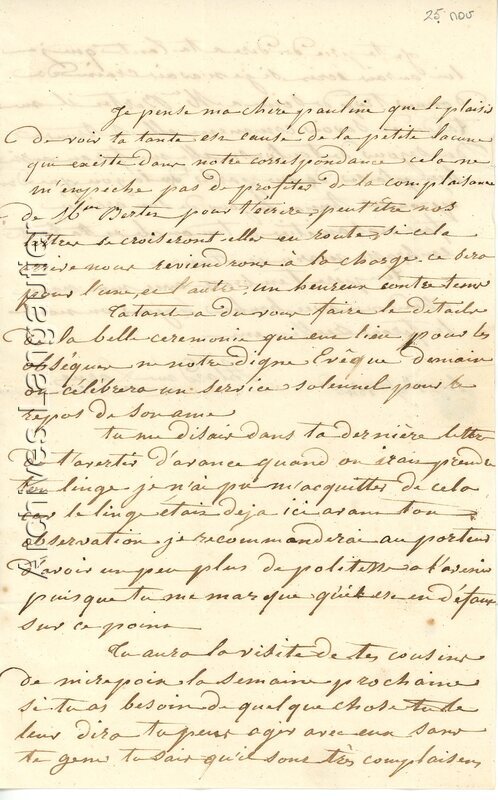 25 nov
Je pense ma chère pauline que le plaisir
de voir ta tante est cause de la petite lacune
qui existe dans notre correspondance cela ne
m'empeche pas de profiter de la complaisance
de Mme pour t'écrire, peut être nos
lettres se croiseront elles en route, si cela
arrive nous reviendrons à la charge. ce sera
pour l'une et l'autre un heureux contre tems
Ta tant a du vous faire le details
de la belle ceremonie qui eu lieu pour les
obséques ne notre digne Evêque demain
on célébrera un service solennel pour le
repos de son ame
tu me disais dans ta dernière lettre
de t'avertir d'avance quand on irais prendre
ton linge je n'ai pu m'acquitter de cela
car le linge étais deja ici avant ton
observation, je recommanderai au porteur
d'avoir un peu plus de politesse a l'avenir
puisque tu me marque qu'il ese en défaux
sur ce point
Tu aura la visite de tes cousins
de mirepoix la semaine prochaine
si tu as besoin de quelque chose tu le
leur dira tu peux agir avec eux sans
te gener tu sais qu'il sont très complaisens
Archives Langautier